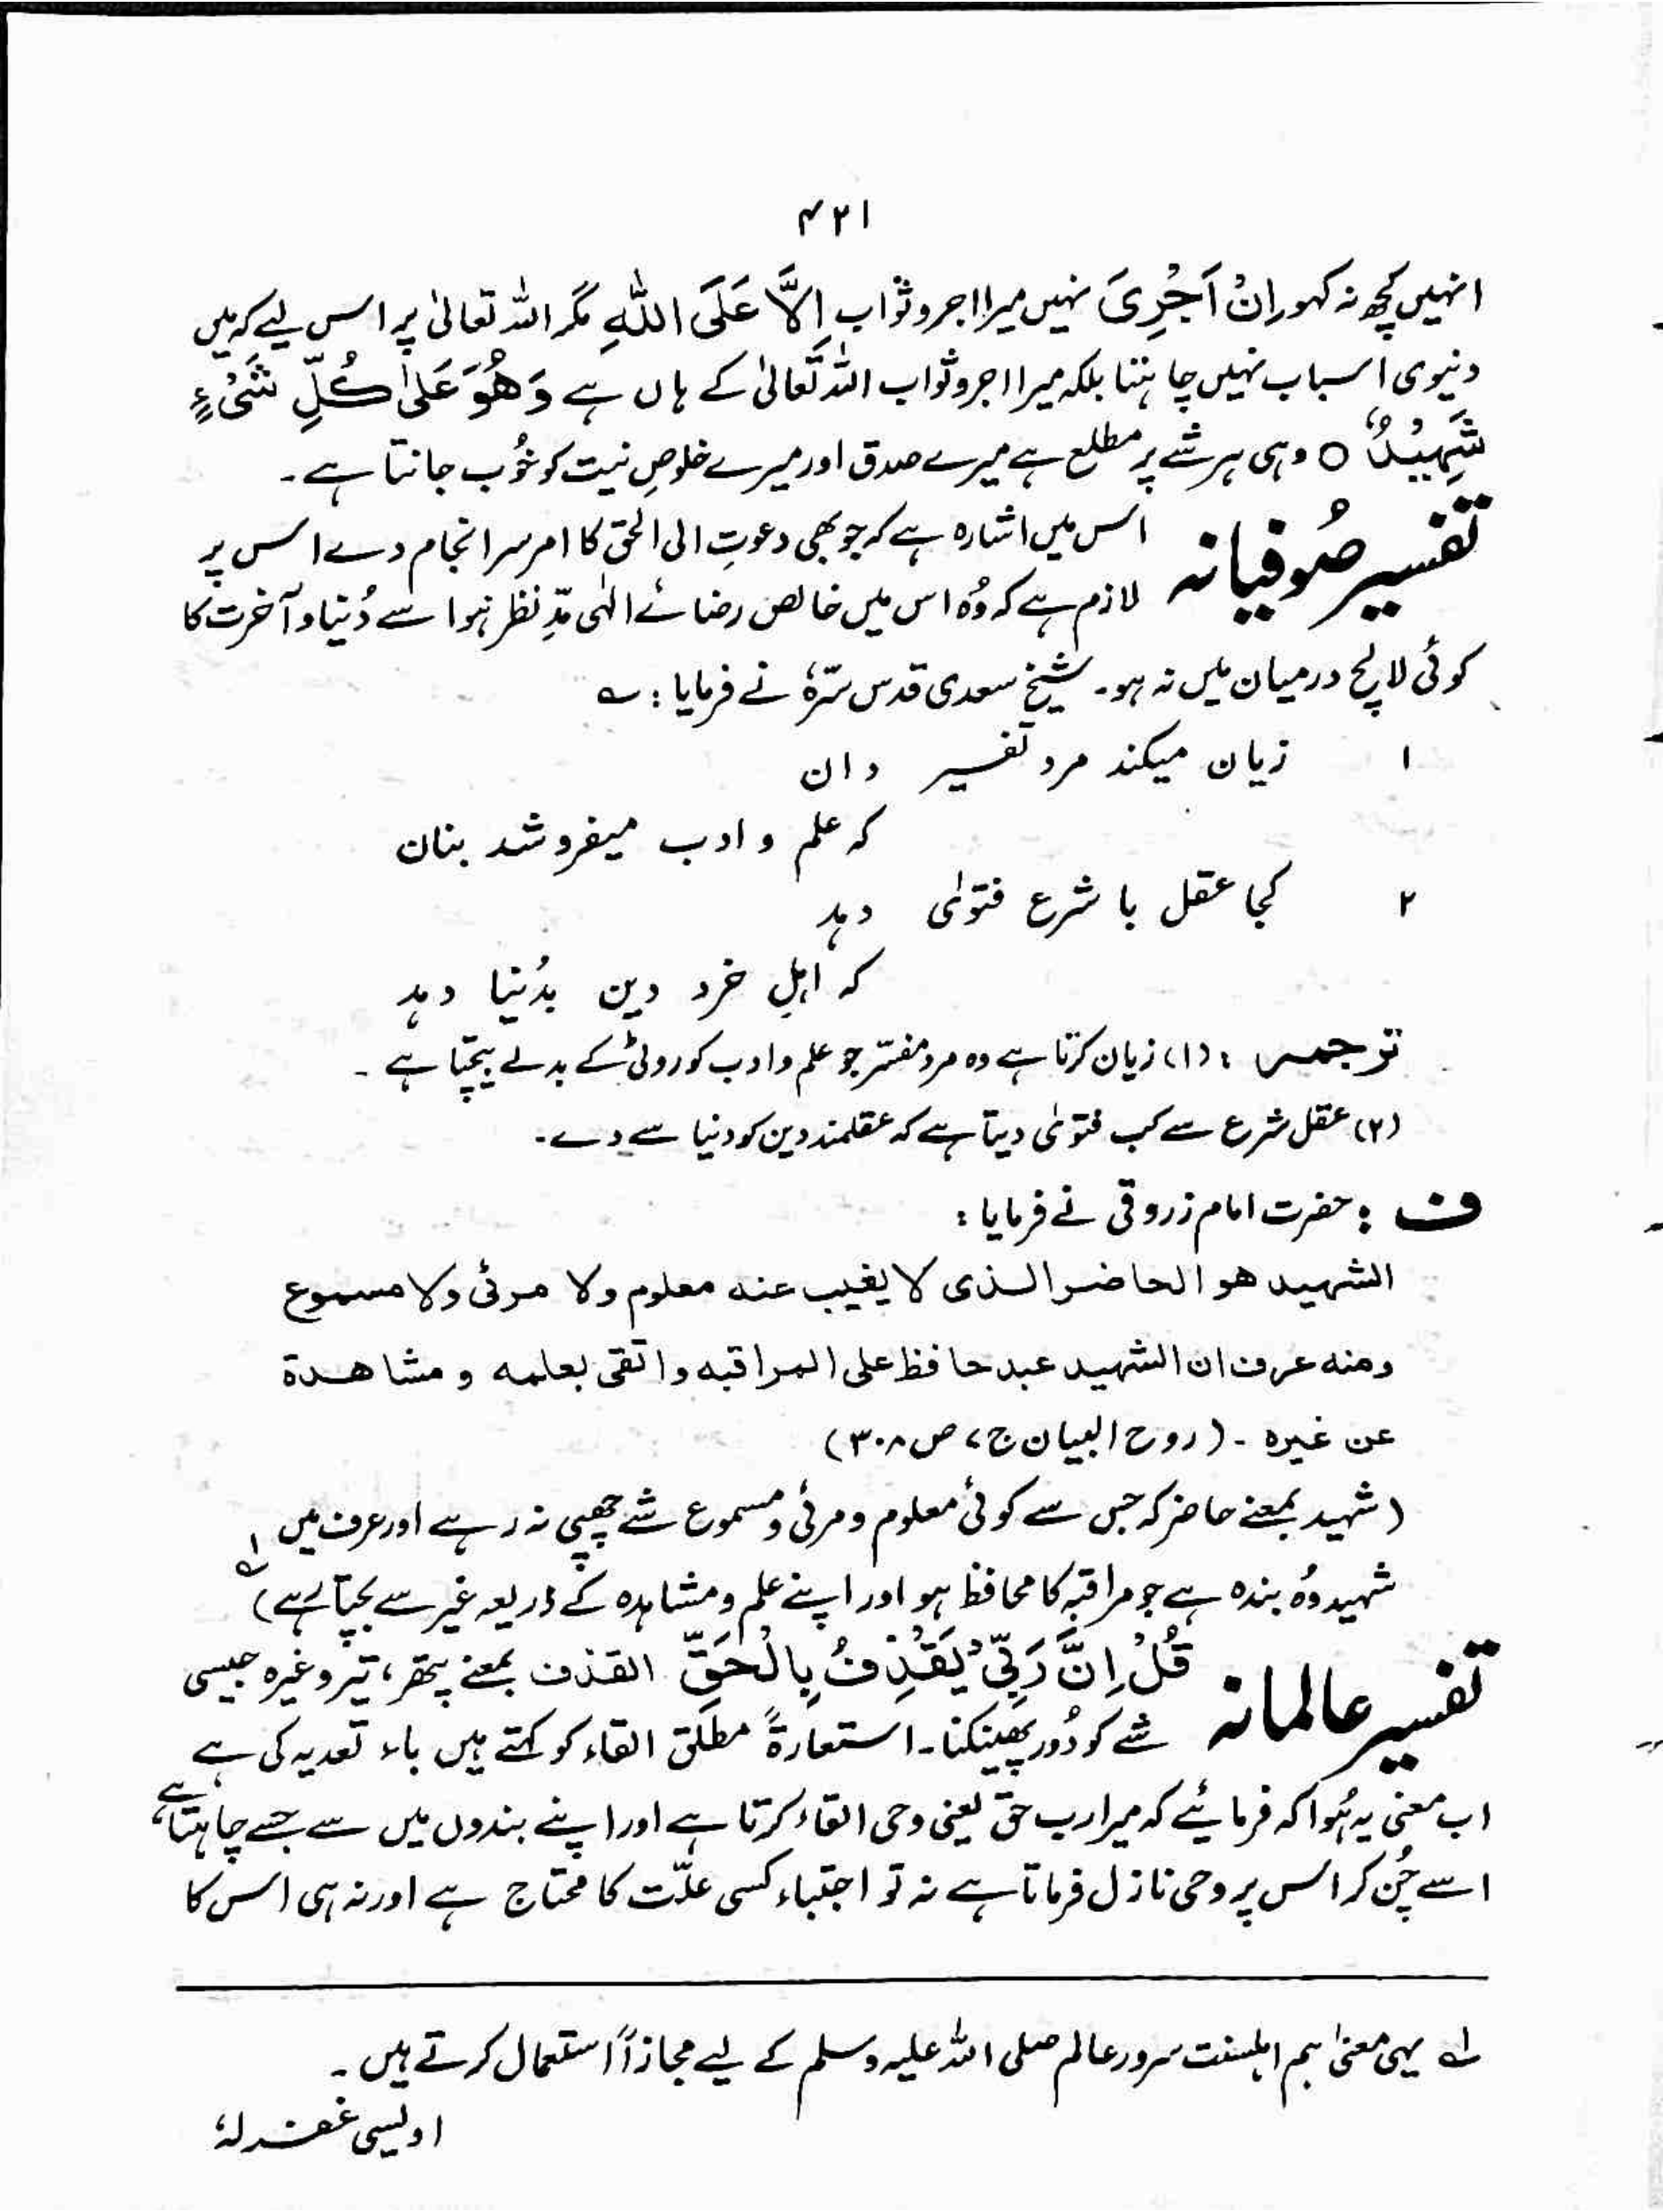 ۴۲۱
انہیں کچھ نہ کہو اِنْ اَجْرِیَ نہیں میرا اجر و ثواب اِلَّا عَلَى اللّٰهِ مگر اللہ تعالیٰ پر اس لیے کہ میں
دنیوی اسباب نہیں چاہتا بلکہ میرا اجر و ثواب اللہ تعالیٰ کے ہاں ہے وَهُوَ عَلٰى كُلِّ شَیْءٍ
شَهِیْدٌ ○ وہی ہر شے پر مطلع ہے میرے صدق اور میرے خلوصِ نیت کو خُوب جانتا ہے۔
تفسیر صُوفیانہ اس میں اشارہ ہے کہ جو بھی دعوتِ الی الحق کا امر سر انجام دے اس پر
لازم ہے کہ وُہ اس میں خالص رضائے الٰہی مدِّ نظر ہو اسے دُنیا و آخرت کا
کوئی لالچ درمیان میں نہ ہو۔ شیخ سعدی قدس سرّہٗ نے فرمایا : ؎
۱ زیان میکند مرد تفسیر دان
کہ علم و ادب میفروشد بنان
۲ کجا عقل با شرع فتوٰی دہد
کہ اہلِ خرد دین بدُنیا دہد
ترجمہ : (۱) زیان کرتا ہے وہ مرد مفسّر جو علم و ادب کو روٹی کے بدلے بیچتا ہے ۔
(۲) عقل شرع سے کب فتوٰی دیتا ہے کہ عقلمند دین کو دنیا سے دے ۔
ف : حضرت امام زروقی نے فرمایا :
الشہید ھو الحاضر الذی لا یغیب عنه معلوم ولا مرئی ولا مسموع
ومنه عرف ان الشہید عبد حافظ علی المراقبه واتقی بعلمه و مشاھدة
عن غیرہ ۔ (روح البیان ج ۷ ص ۳۰۸)
(شہید بمعنے حاضر کہ جس سے کوئی معلوم و مرئی و مسموع شے چھپی نہ رہے اور عرف میں
شہید وُہ بندہ ہے جو مراقبہ کا محافظ ہو اور اپنے علم و مشاہدہ کے ذریعہ غیر سے بچتا رہے) لہ
تفسیر عالمانہ قُلْ اِنَّ رَبِّیْ یَقْذِفُ بِالْحَقِّ القذف بمعنے پتھر، تیر وغیرہ جیسی
شے کو دُور پھینکنا ۔ استعارۃً مطلق القاء کو کہتے ہیں باء تعدیہ کی ہے
اب معنی یہ ہُوا کہ فرمائیے کہ میرا رب حق یعنی وحی القاء کرتا ہے اور اپنے بندوں میں سے جسے چاہتا ہے،
اسے چُن کر اس پر وحی نازل فرماتا ہے نہ تو اجتباء کسی علّت کا محتاج ہے اور نہ ہی اس کا
لہ یہی معنیٰ ہم اہلسنت سرور عالم صلی اللہ علیہ وسلم کے لیے مجازاً استعمال کرتے ہیں ۔
اویسی غفرلہٗ